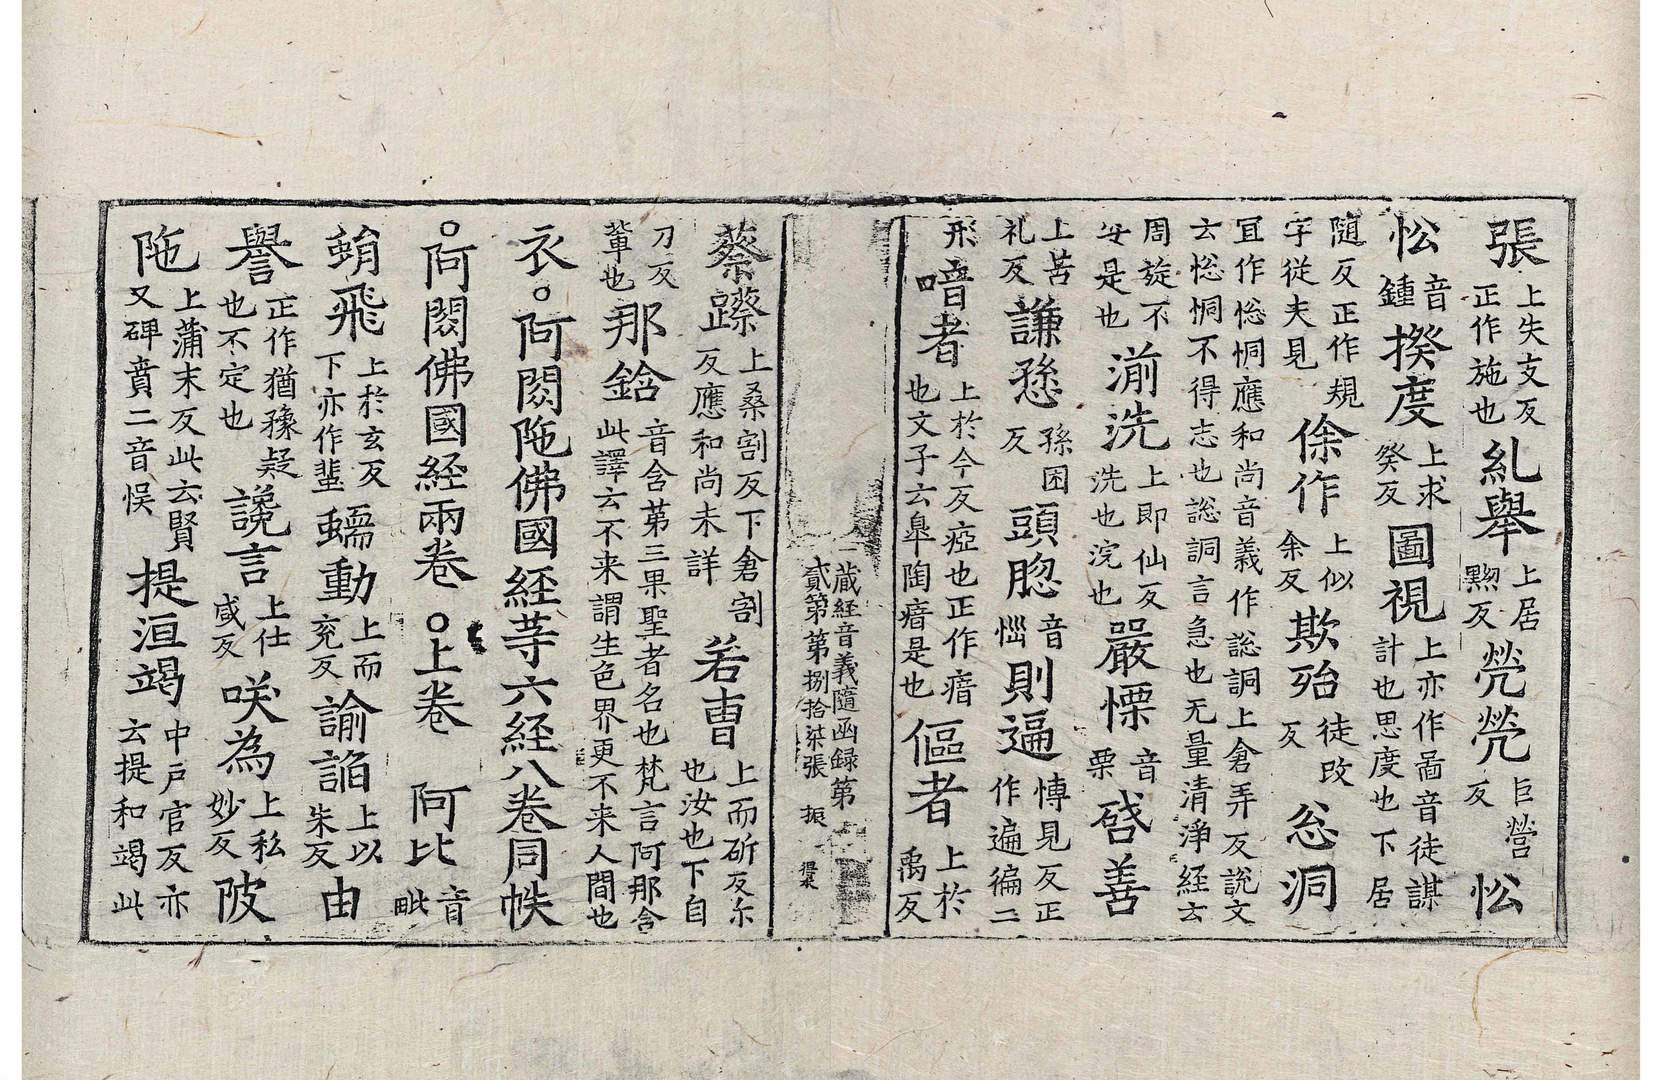 張上失支反正作施也糺舉上居黝反焭焭巨營反忪
忪音鍾揆度上求癸反圖視上亦作啚音徒謀計也思度也下居
隨反正作規字從夫見㑒作上似余反欺殆徒改反忩洞
宜作愡恫應和尚音義作謥詷上倉弄反說文云愡恫不得志也謥詷言急也无量清淨経云
周旋不安是也湔洗上即仙反洗也浣也嚴慄音栗啓善
上苦礼反謙愻孫困反頭𦛁音𢙉則逼愽見反正作遍徧二
形喑者上於今反瘂也正作瘖也文子云臯陶瘖是也傴者上於禹反
蔵経音義隨函録第貳第第捌拾柒張 振
蔡𨆾上桑割反下倉割反應和尚未詳若曺上而斫反尓也汝也下自
刀反軰也那鋡音含苐三果聖者名也梵言阿那含此譯云不来謂生色界更不来人間也
衣○阿閦陁佛國経等六経八卷同帙
○阿閦佛國経兩卷○上卷 阿比音毗
蜎飛上於玄反下亦作蜚蠕動上而兖反諭諂上以朱反由
譽正作猶豫疑也不定也讒言上仕咸反咲為上私妙反陂
陁上蒲末反此云賢又碑賁二音悮提洹竭中戸官反亦云提和竭此